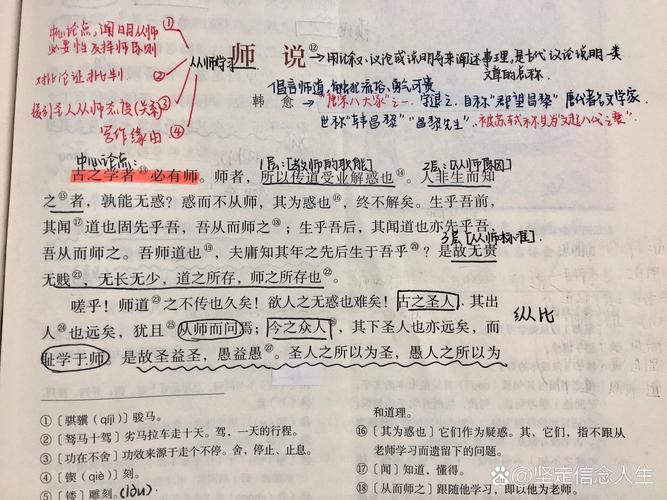 中心论点,阐明从师 ①
必要性及择师原则
对比论证 批判 ②
从师学习
援引圣人从师态度(关系) ③
写作缘由 ④
师 说⑫ → 用论叙、议论或说明等来阐述事理,是古代议论说明一类
文章的总称.
倡言师道,勇气可贵
韩 愈 → "唐宋八大家"之一. 字退之. 自称"郡望昌黎" 唐代著名文学家.
世称"韩昌黎" "昌黎先生". 被苏轼称誉为"文起八代之衰".
中心论点: 1层:[教师的职能] 2层:[从师原因]
古之学者⑬必有师。师者,所以传道受业解惑也⑭。人非生而知
之⑮者,孰能无惑?惑而不从师,其为惑也⑯,终不解矣。生乎吾前,
其闻⑰道也固先乎吾,吾从而师之⑱;生乎吾后,其闻道也亦先乎吾,
3层[从师标准].
吾从而师之。吾师道也⑲,夫庸知其年之先后生于吾乎⑳?是故无贵
无贱㉑,无长无少,道之所存,师之所存也㉒。
嗟乎!师道㉓之不传也久矣!欲人之无惑也难矣!古之圣人,其出
人㉔也远矣,犹且㉕从师而问焉;今之众人㉖,其下圣人也亦远矣,而
纵比
耻学于师。是故圣益圣,愚益愚㉗。圣人之所以为圣,愚人之所以为
①〔骐骥(qíjì)〕骏马。
②〔驽马十驾〕劣马拉车走十天。驾,一天的行程。
③〔功在不舍〕功效来源于走个不停。舍,停止、止息。
④〔锲(qiè)〕刻。
⑤〔镂〕雕刻。(lòu)
和道理。
⑯〔其为惑也〕它们作为疑惑。其,它们,指不跟从
老师学习而遗留下的问题。
⑰〔闻〕知道,懂得。
⑱〔从而师之〕跟随他学习,即以他为老师。
坚定信念人生